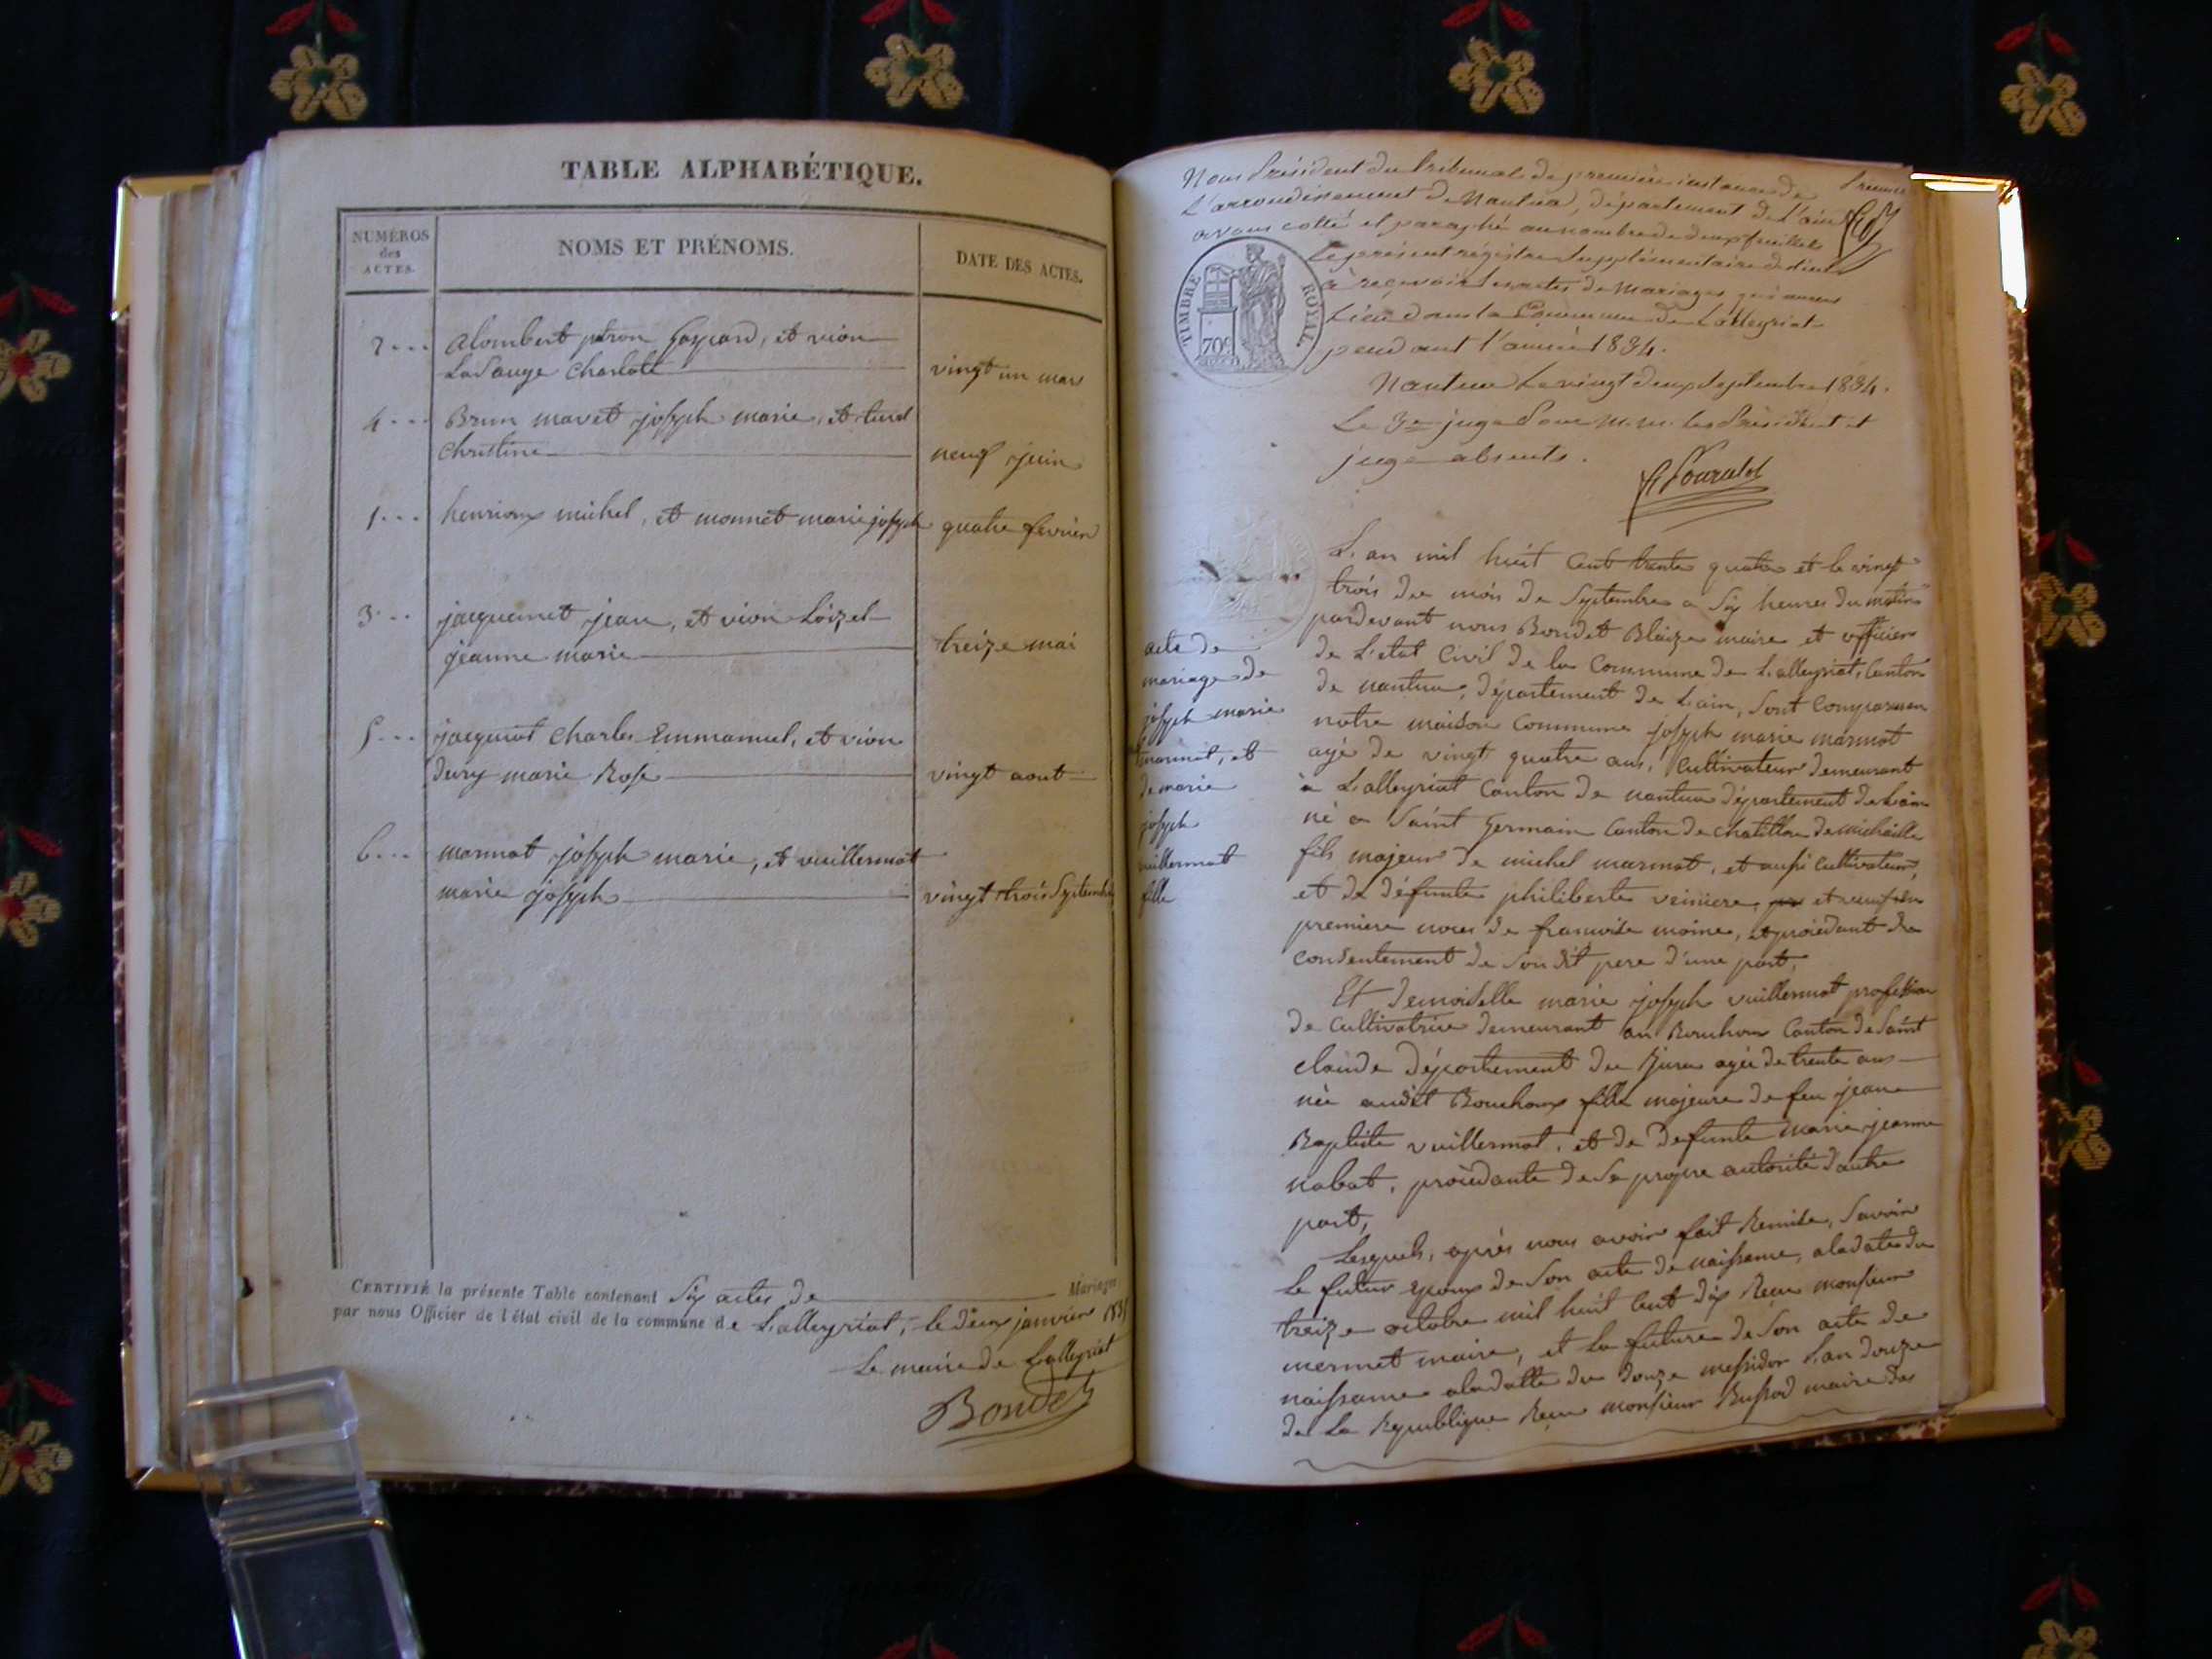 TABLE ALPHABÉTIQUE.
NUMÉROS
des
ACTES.
NOMS ET PRÉNOMS.
DATE DES ACTES.
2 alombert Gaspard, et vion
Lasauge Charlote vingt un mars
4 Brun mavet joseph marie, et
christine neuf juin
1 henrioux michel, et monnet marie joseph quatre fevrier
3 jacquemet jean, et vion Loizel
jeanne marie treize mai
5 jacquiot Charles Emmanuel, et vion
dury marie Rose vingt aout
6 marmot joseph marie, et vuillermot
marie joseph vingt trois Septembre
CERTIFIÉ la présente Table contenant Six actes de Mariages
par nous Officier de l'état civil de la commune de Lalleyriat, le deux janvier 1835
Le maire de Lalleyriat
Bondet
Nous Président du tribunal de première instance de
L'arrondissement de Nantua, département de l'ain
avons cotté et paraphé au nombre de deux feuillets
Le présent régistre supplémentaire destiné
à recevoir les actes de Mariages qui auront
Lieu dans la Commune de Lalleyriat
pendant l'année 1834.
TIMBRE ROYAL
70c
Nantua Le vingt deux Septembre 1834.
Le 3e juge Pour M.M. les Président et
juge absents.
L'an mil huit Cent trente quatre et le vingt
trois du mois de Septembre a Six heures du matin
pardevant nous Bondet Blaize maire et officier
de L'etat Civil de la Commune de Lalleyriat, Canton
de nantua, département de Lain, Sont Comparu en
notre maison Commune joseph marie marmot
agé de vingt quatre ans, Cultivateur demeurant
à Lalleyriat Canton de nantua département de Lain
né a Saint Germain Canton de Chatillon de michaille
fils majeur de michel marmot, et aussi Cultivateur,
et de défunte philiberte veiniere, et veuf en
premiere noces de francoise moine, et procédant du
consentement de Son dit pere d'une part,
acte de
mariage de
joseph marie
marmot, et
de marie
joseph
vuillermot
fille
Et demoiselle marie joseph vuillermot profession
de Cultivatrice demeurant au Bouchoux Canton de Saint
claude Département du Jura agée de trente ans
née audit Bouchoux fille majeure de feu jean
Baptiste vuillermot, et de Defunte marie jeanne
nabot, procédante de Sa propre autorité d'autre
part,
Lesquels, après nous avoir fait Remise, Savoir
Le futur epoux de Son acte de naissance, a la date du
treize octobre mil huit Cent dix Recu monsieur
mermet maire, et La future de Son acte de
naissance a la datte du douze messidor L'an douze
de La Republique Recu monsieur Bussod maire des